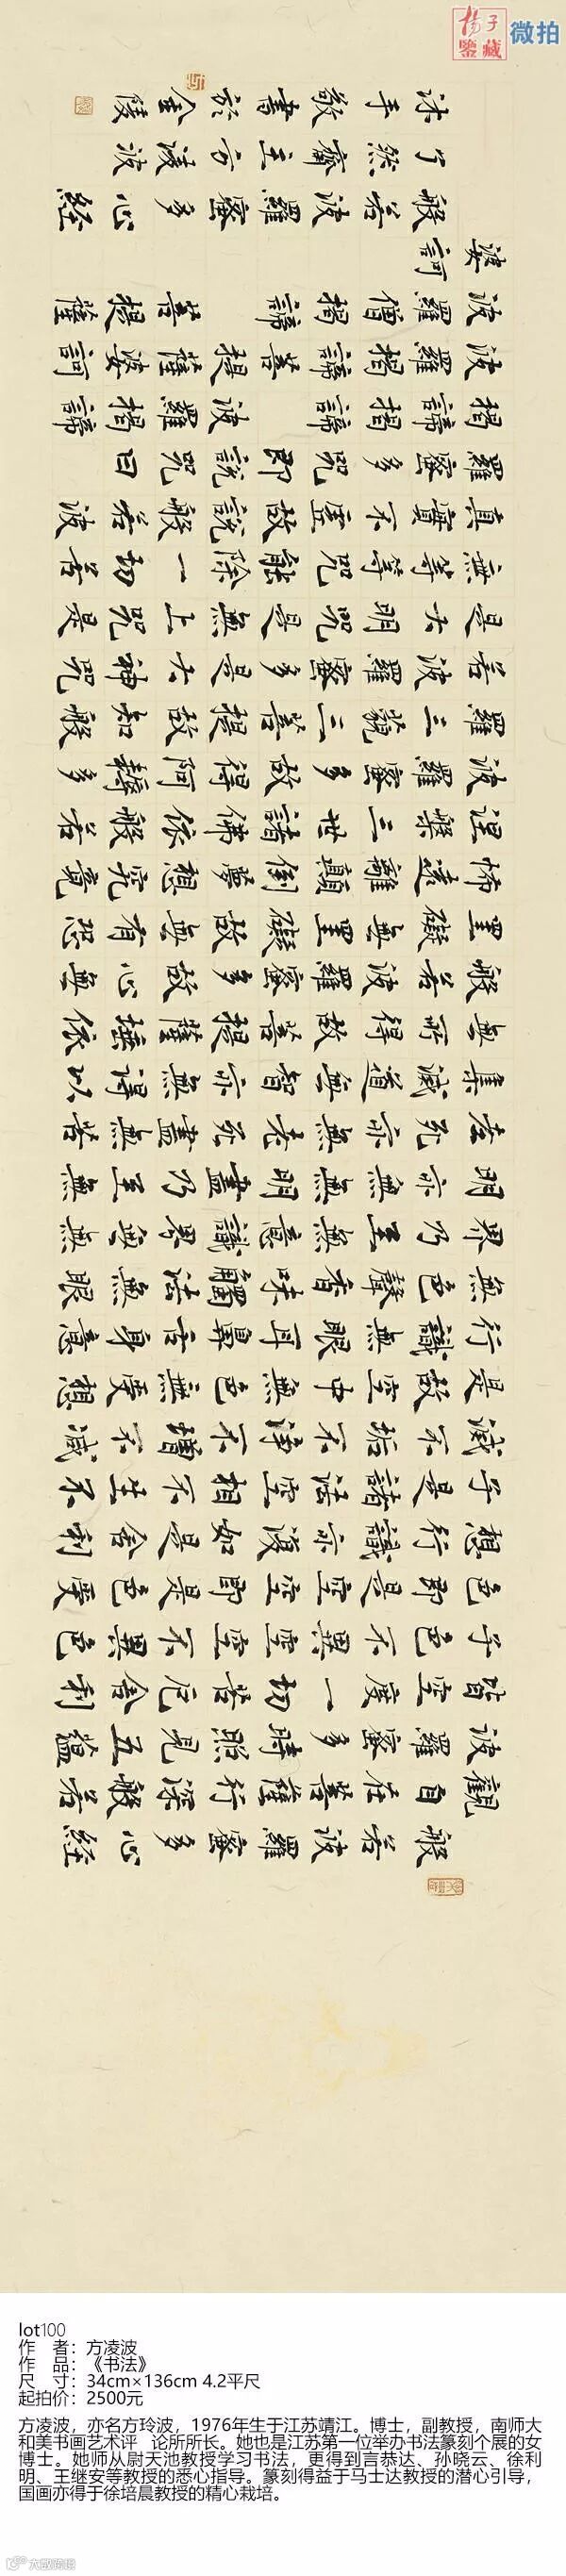 揚子
鑒藏
微拍
般若波羅蜜多心経
觀自在菩薩行深般若
波羅蜜多時照見五蘊
皆空度一切苦厄舍利
子色不異空空不異色
色即是空空即是色受
想行識亦復如是舍利
子是諸法空相不生不
滅不垢不淨不增不減
是故空中無色無受想
行識無眼耳鼻舌身意
無色聲香味觸法無眼
界乃至無意識界無無
明亦無無明盡乃至無
老死亦無老死盡無苦
集滅道無智亦無得以
無所得故菩提薩埵依
般若波羅蜜多故心無
罣礙無罣礙故無有恐
怖遠離顛倒夢想究竟
涅槃三世諸佛依般若
波羅蜜多故得阿耨多
羅三藐三菩提故知般
若波羅蜜多是大神咒
是大明咒是無上咒是
無等等咒能除一切苦
真實不虛故說般若波
羅蜜多咒即說咒曰
揭諦揭諦波羅揭諦
波羅揭諦菩提薩婆訶
波羅僧揭諦菩提薩
婆訶
般若波羅蜜多心経
了然齋主方凌波
沐手敬書於金陵
lot100
作 者：方凌波
作 品：《书法》
尺 寸：34cm×136cm 4.2平尺
起拍价：2500元
方凌波，亦名方玲波，1976年生于江苏靖江。博士，副教授，南师大
和美书画艺术评 论所所长。她也是江苏第一位举办书法篆刻个展的女
博士。她师从尉天池教授学习书法，更得到言恭达、孙晓云、徐利
明、王继安等教授的悉心指导。篆刻得益于马士达教授的潜心引导，
国画亦得于徐培晨教授的精心栽培。